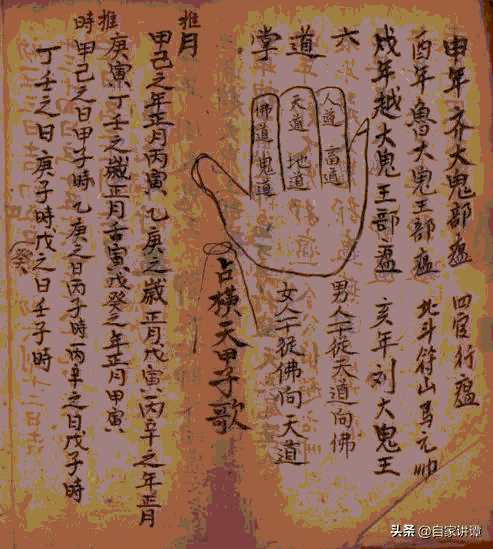 申年齐大鬼部瘟 四官行瘟
酉年魯大鬼王部瘟 北斗符山馬元帅
戌年越大鬼王部瘟 亥年刘大鬼王
六道掌
人道 畜道
天道 地道
佛道 鬼道
男人從天道向佛
女人從佛向天道
占横天甲子歌
推月
甲己之年正月丙寅 乙庚之歲正月戊寅 丙辛之年正月
庚寅丁壬之歲正月壬寅戊癸之年正月甲寅
推時
甲己之日甲子時乙庚之日丙子時丙辛之日戊子時
丁壬之日庚子時戊癸之日壬子時
头条 @自家讲谭